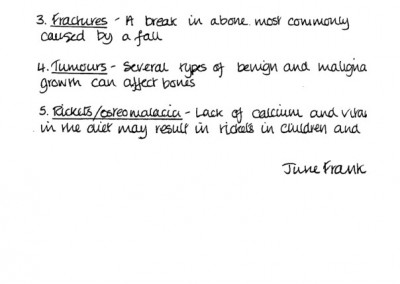 3. Fractures - A break in a bone most commonly
caused by a fall
4. Tumours - Several types of benign and maligna
growth can affect bones
5. Rickets/osteomalacia - Lack of calcium and vita
in the diet may result in rickets in children and
June Frank